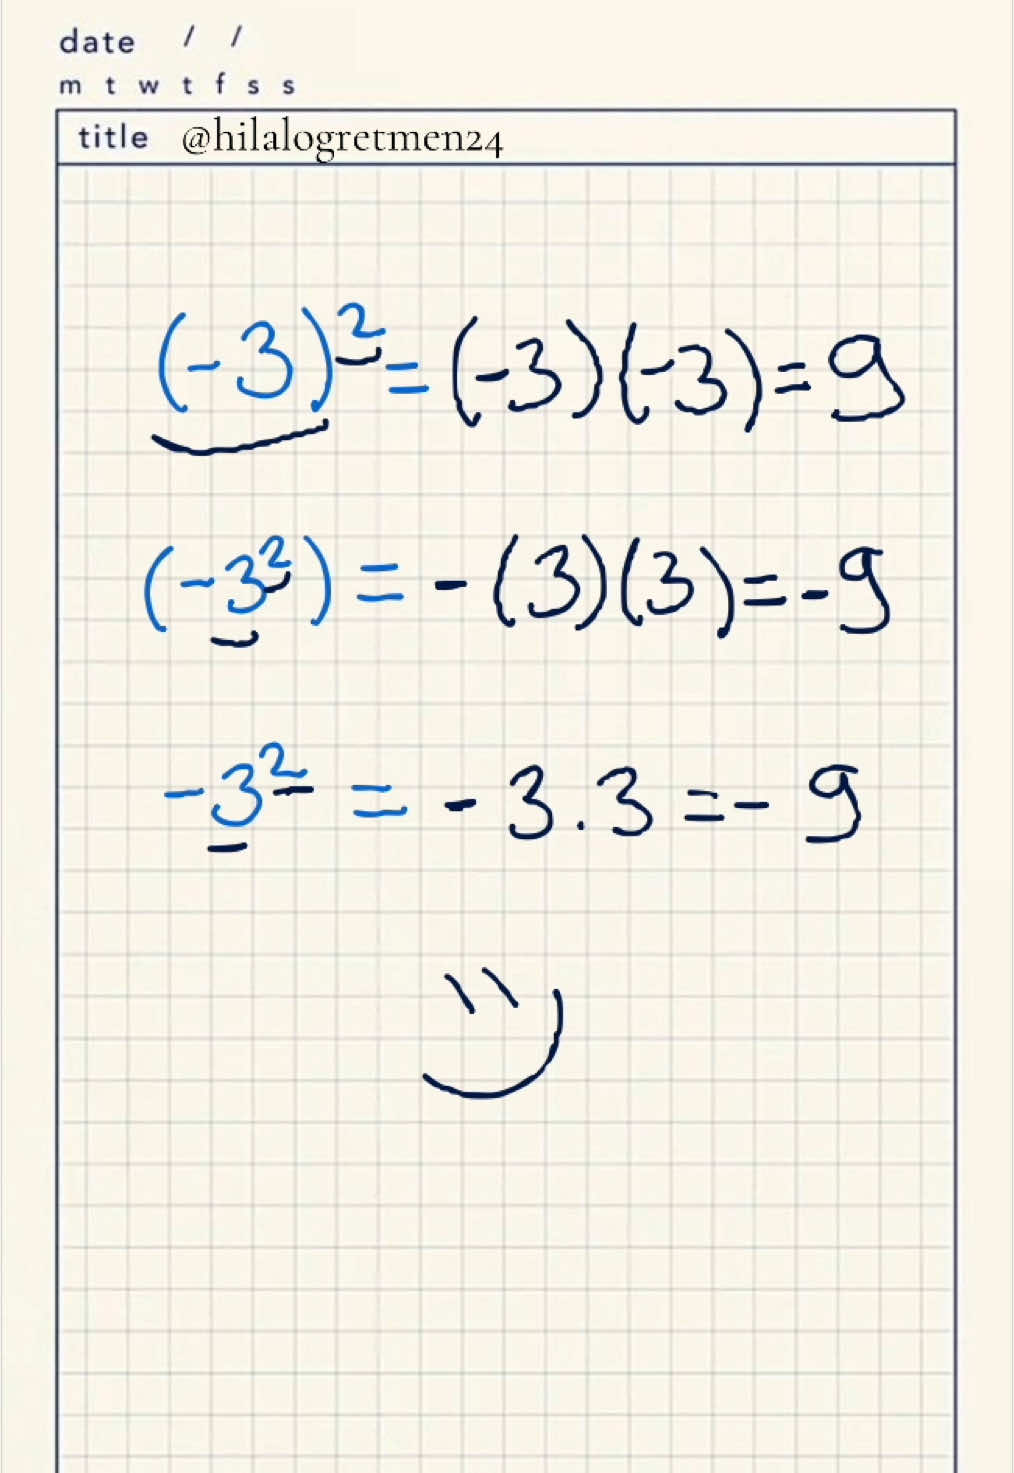 date / /
m t w t f s s
title @hilalogretmen24
(-3)² = (-3)(-3) = 9
(-3²) = - (3)(3) = - 9
-3² = - 3 . 3 = - 9